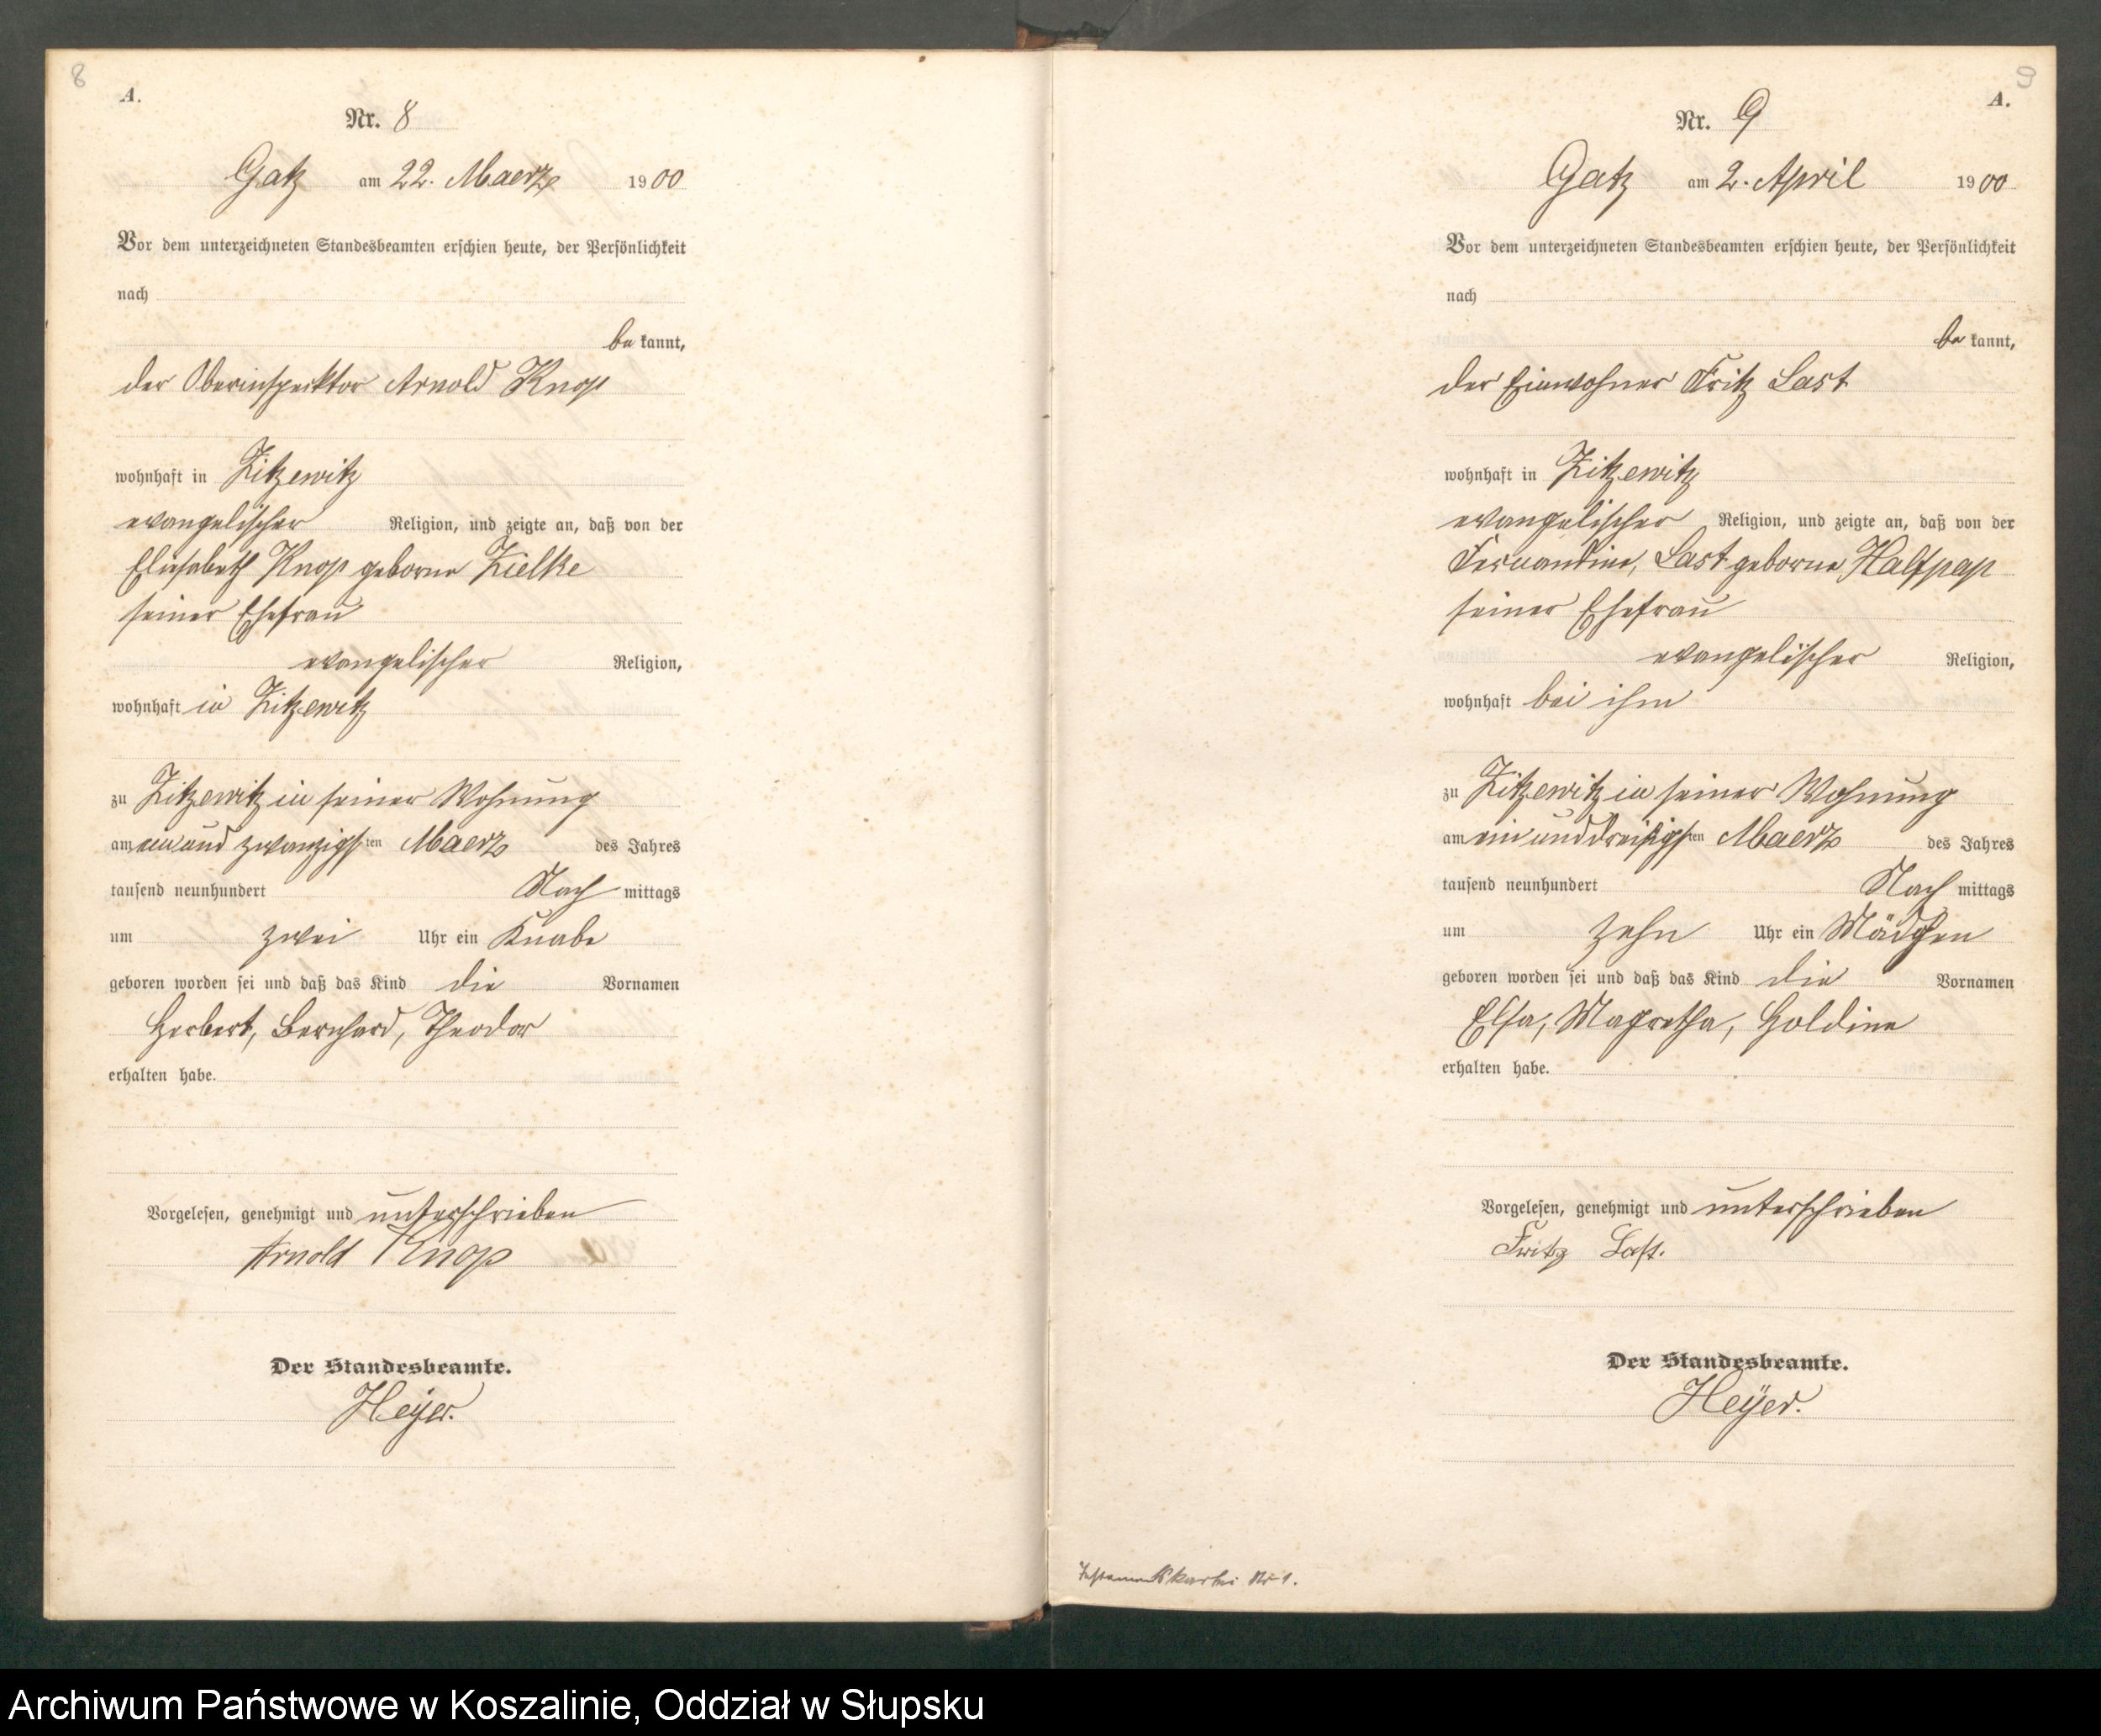 8
A.
Nr. 8
Gatz am 22. Maerz 1900
Vor dem unterzeichneten Standesbeamten erschien heute, der Persönlichkeit
nach
be kannt,
der Oberinspecktor Arnold Knop
wohnhaft in Zitzewitz
evangelischer Religion, und zeigte an, daß von der
Eliesabeth Knop geborne Zielke
seiner Ehefrau
evangelischer Religion,
wohnhaft in Zitzewitz
zu Zitzewitz in seiner Wohnung
am ein und zwanzigsten Maerz des Jahres
tausend neunhundert Nach mittags
um zwei Uhr ein Knabe
geboren worden sei und daß das Kind die Vornamen
Herbert, Bernhard, Theodor
erhalten habe.
Vorgelesen, genehmigt und unterschrieben
Arnold Knop
Der Standesbeamte.
Heyer.
9
A.
Nr. 9
Gatz am 2. April 1900
Vor dem unterzeichneten Standesbeamten erschien heute, der Persönlichkeit
nach
be kannt,
der Einwohner Fritz Last
wohnhaft in Zitzewitz
evangelischer Religion, und zeigte an, daß von der
Fernandine, Last geborne Halfpap
seiner Ehefrau
evangelischer Religion,
wohnhaft bei ihm
zu Zitzewitz in seiner Wohnung
am ein und dreißigsten Maerz des Jahres
tausend neunhundert Nach mittags
um zehn Uhr ein Mädchen
geboren worden sei und daß das Kind die Vornamen
Elsa, Magretha, Holdine
erhalten habe.
Vorgelesen, genehmigt und unterschrieben
Fritz Last.
Der Standesbeamte.
Heyer.
Testamentskartei Nr 1.
Archiwum Państwowe w Koszalinie, Oddział w Słupsku